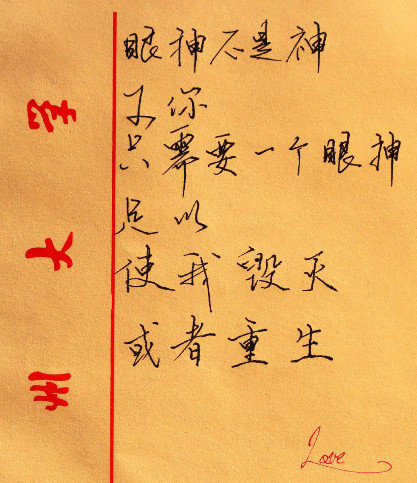 眼神不是神
你
只需要一个眼神
足以
使我毁灭
或者重生
大
州
Love